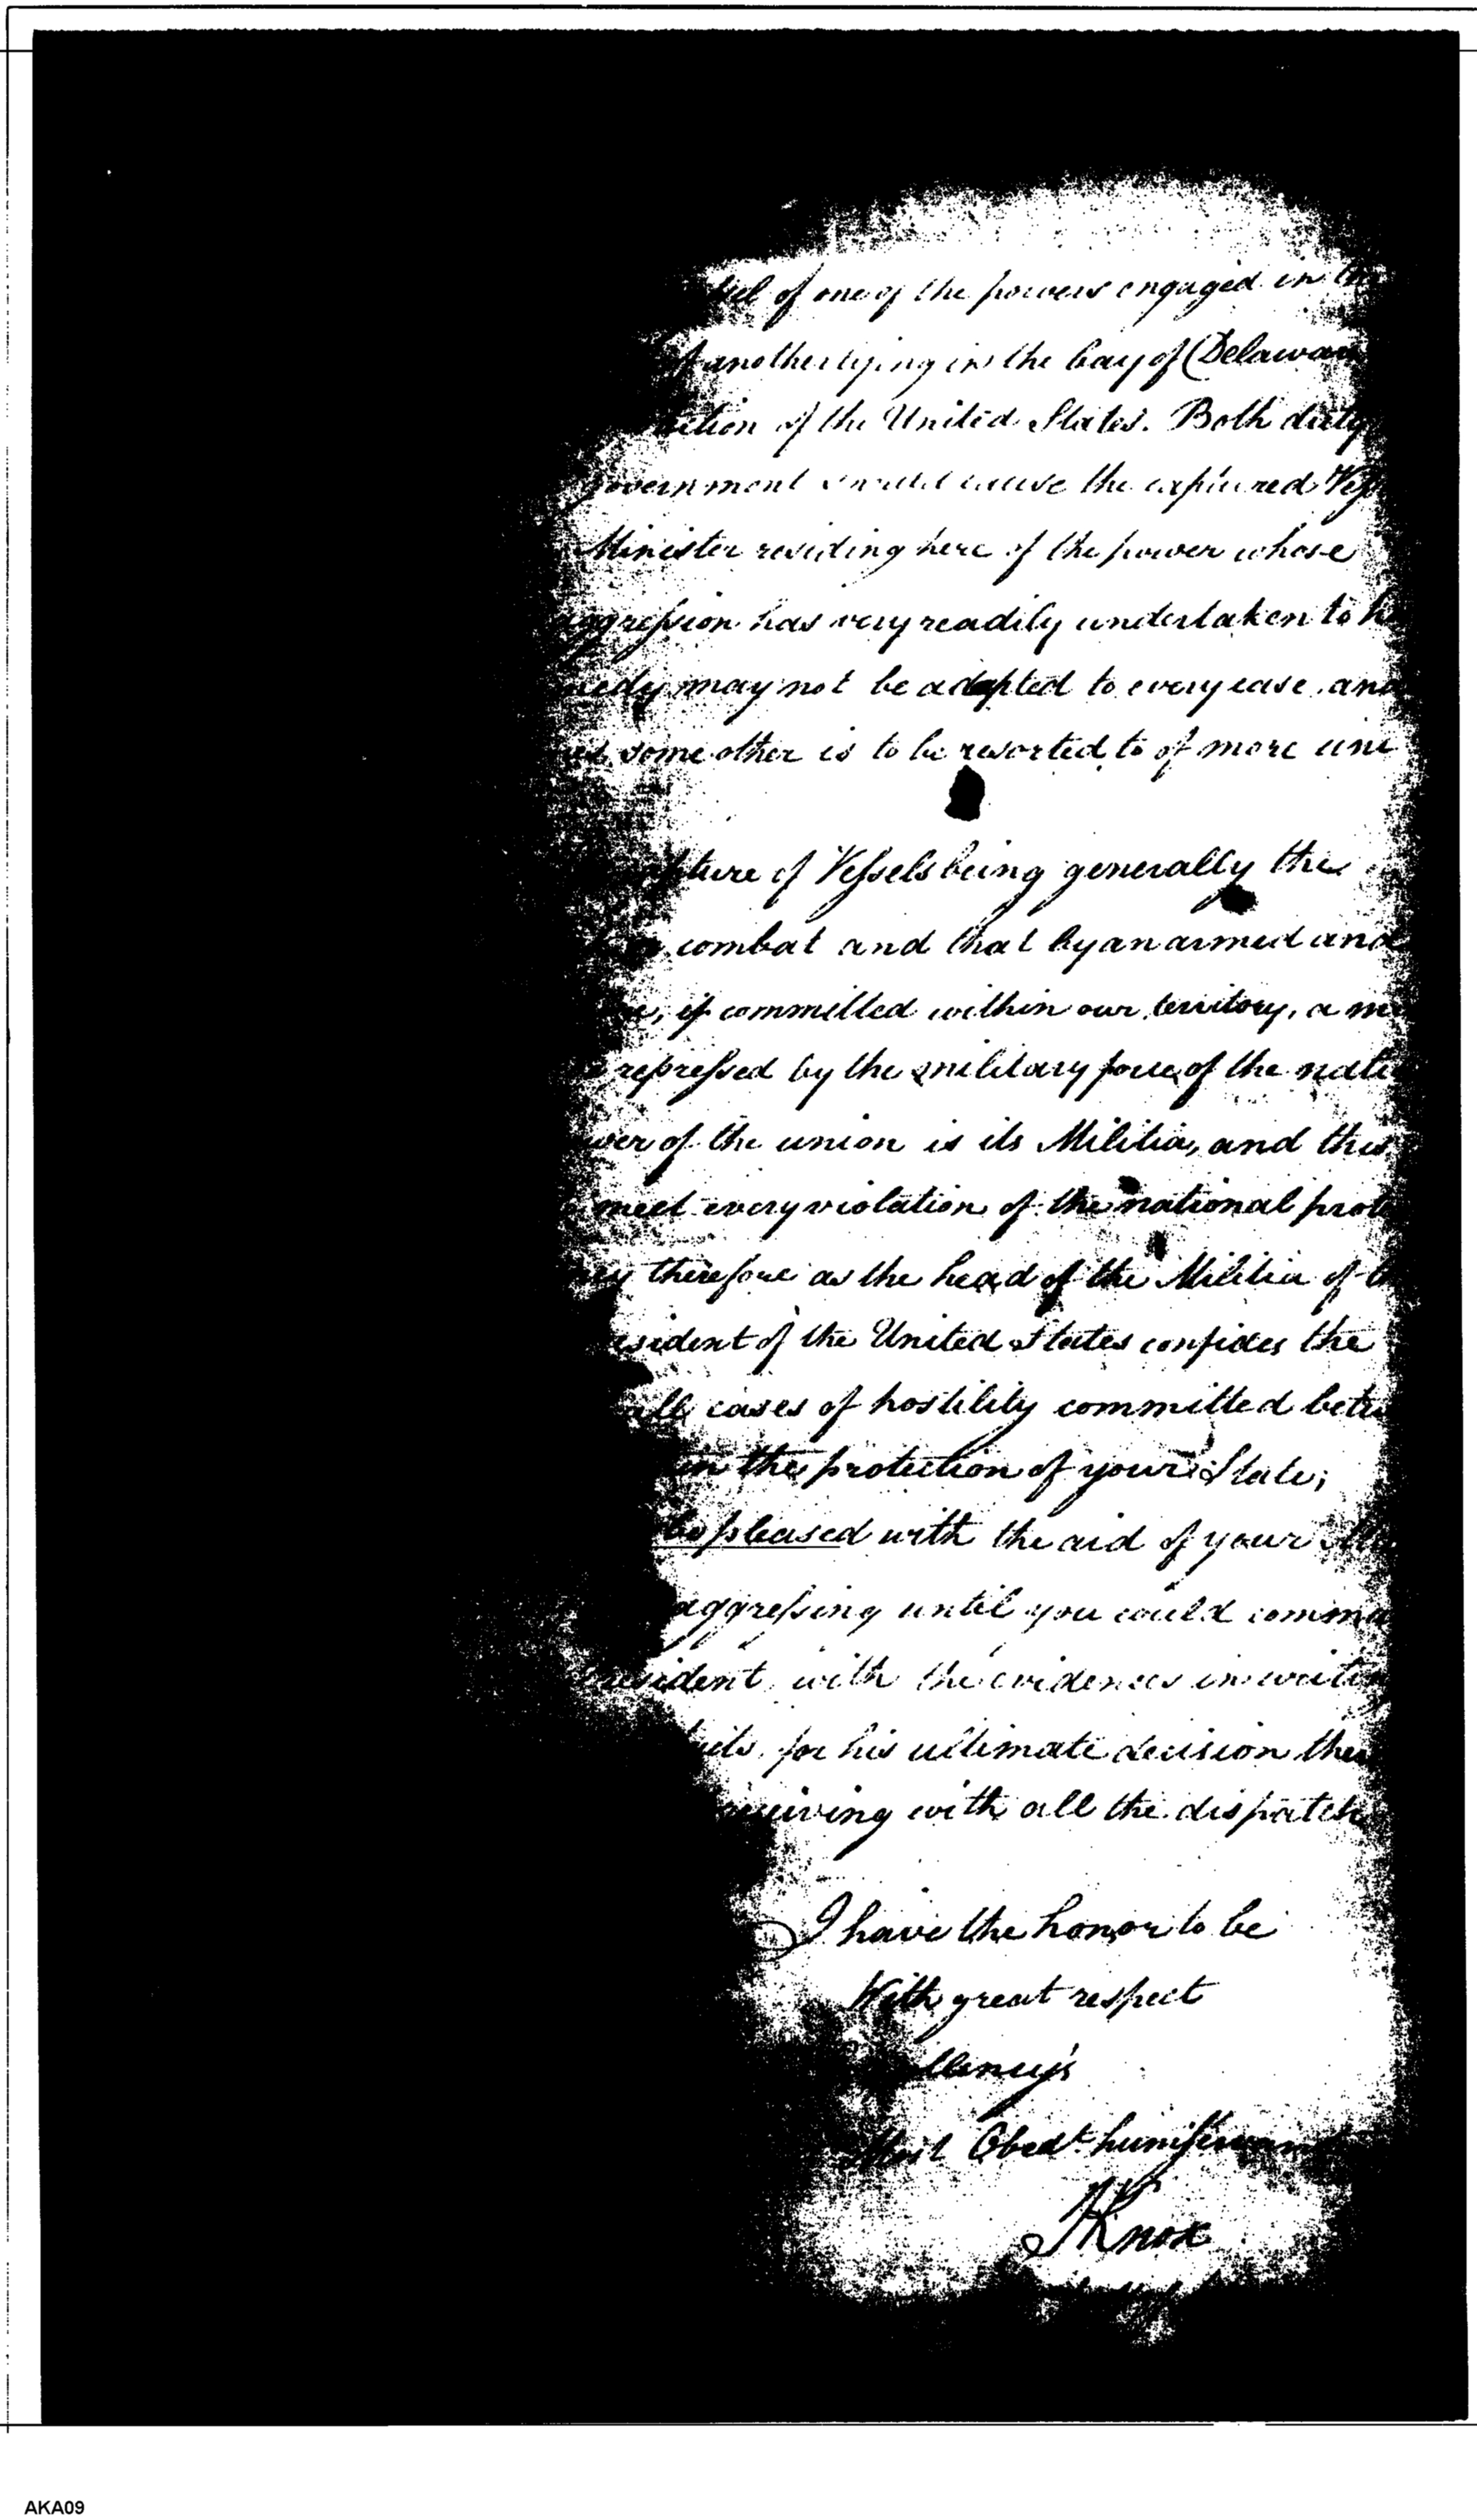 of one of the powers engaged in
another lying in the bay of Delaware
of the United States. Both duty
Government should cause the captured
Minister residing here of the power whose
aggression has very readily undertaken to
may not be adapted to every case, and
some other is to be resorted to of more
of Vessels being generally the
combat and that by an armed and
if committed within our territory, a
repressed by the military force of the
of the union is its Militia, and this
meet every violation of the national
therefore as the head of the Militia of
of the United States confides the
all cases of hostility committed
in the protection of your State;
be pleased with the aid of your
aggressing until you could
with the evidences in
for his ultimate decision
with all the dispatch
I have the honor to be
With great respect
Most Obedt. hum Servant
HKnox
AKA09